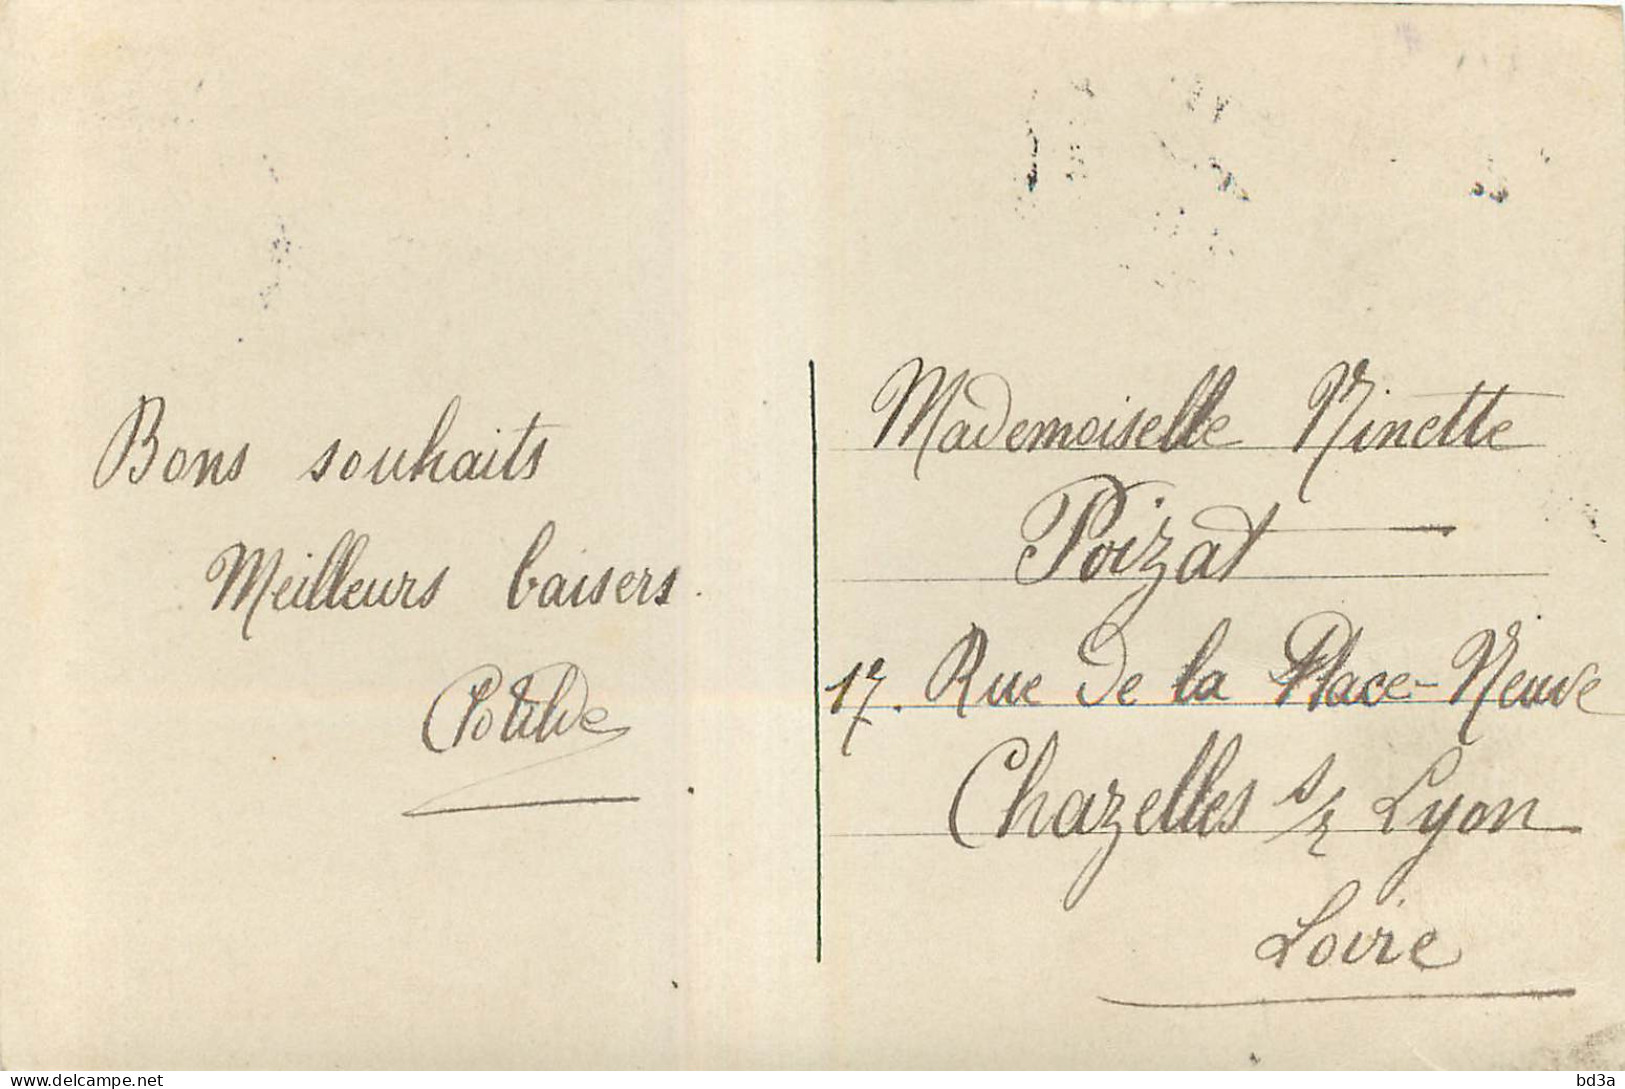 Bons souhaits
Meilleurs baisers.
Clotilde
Mademoiselle Ninette
Poizat
17. Rue de la Place-Neuve
Chazelles s/r Lyon
Loire
delcampe.net
bd3a